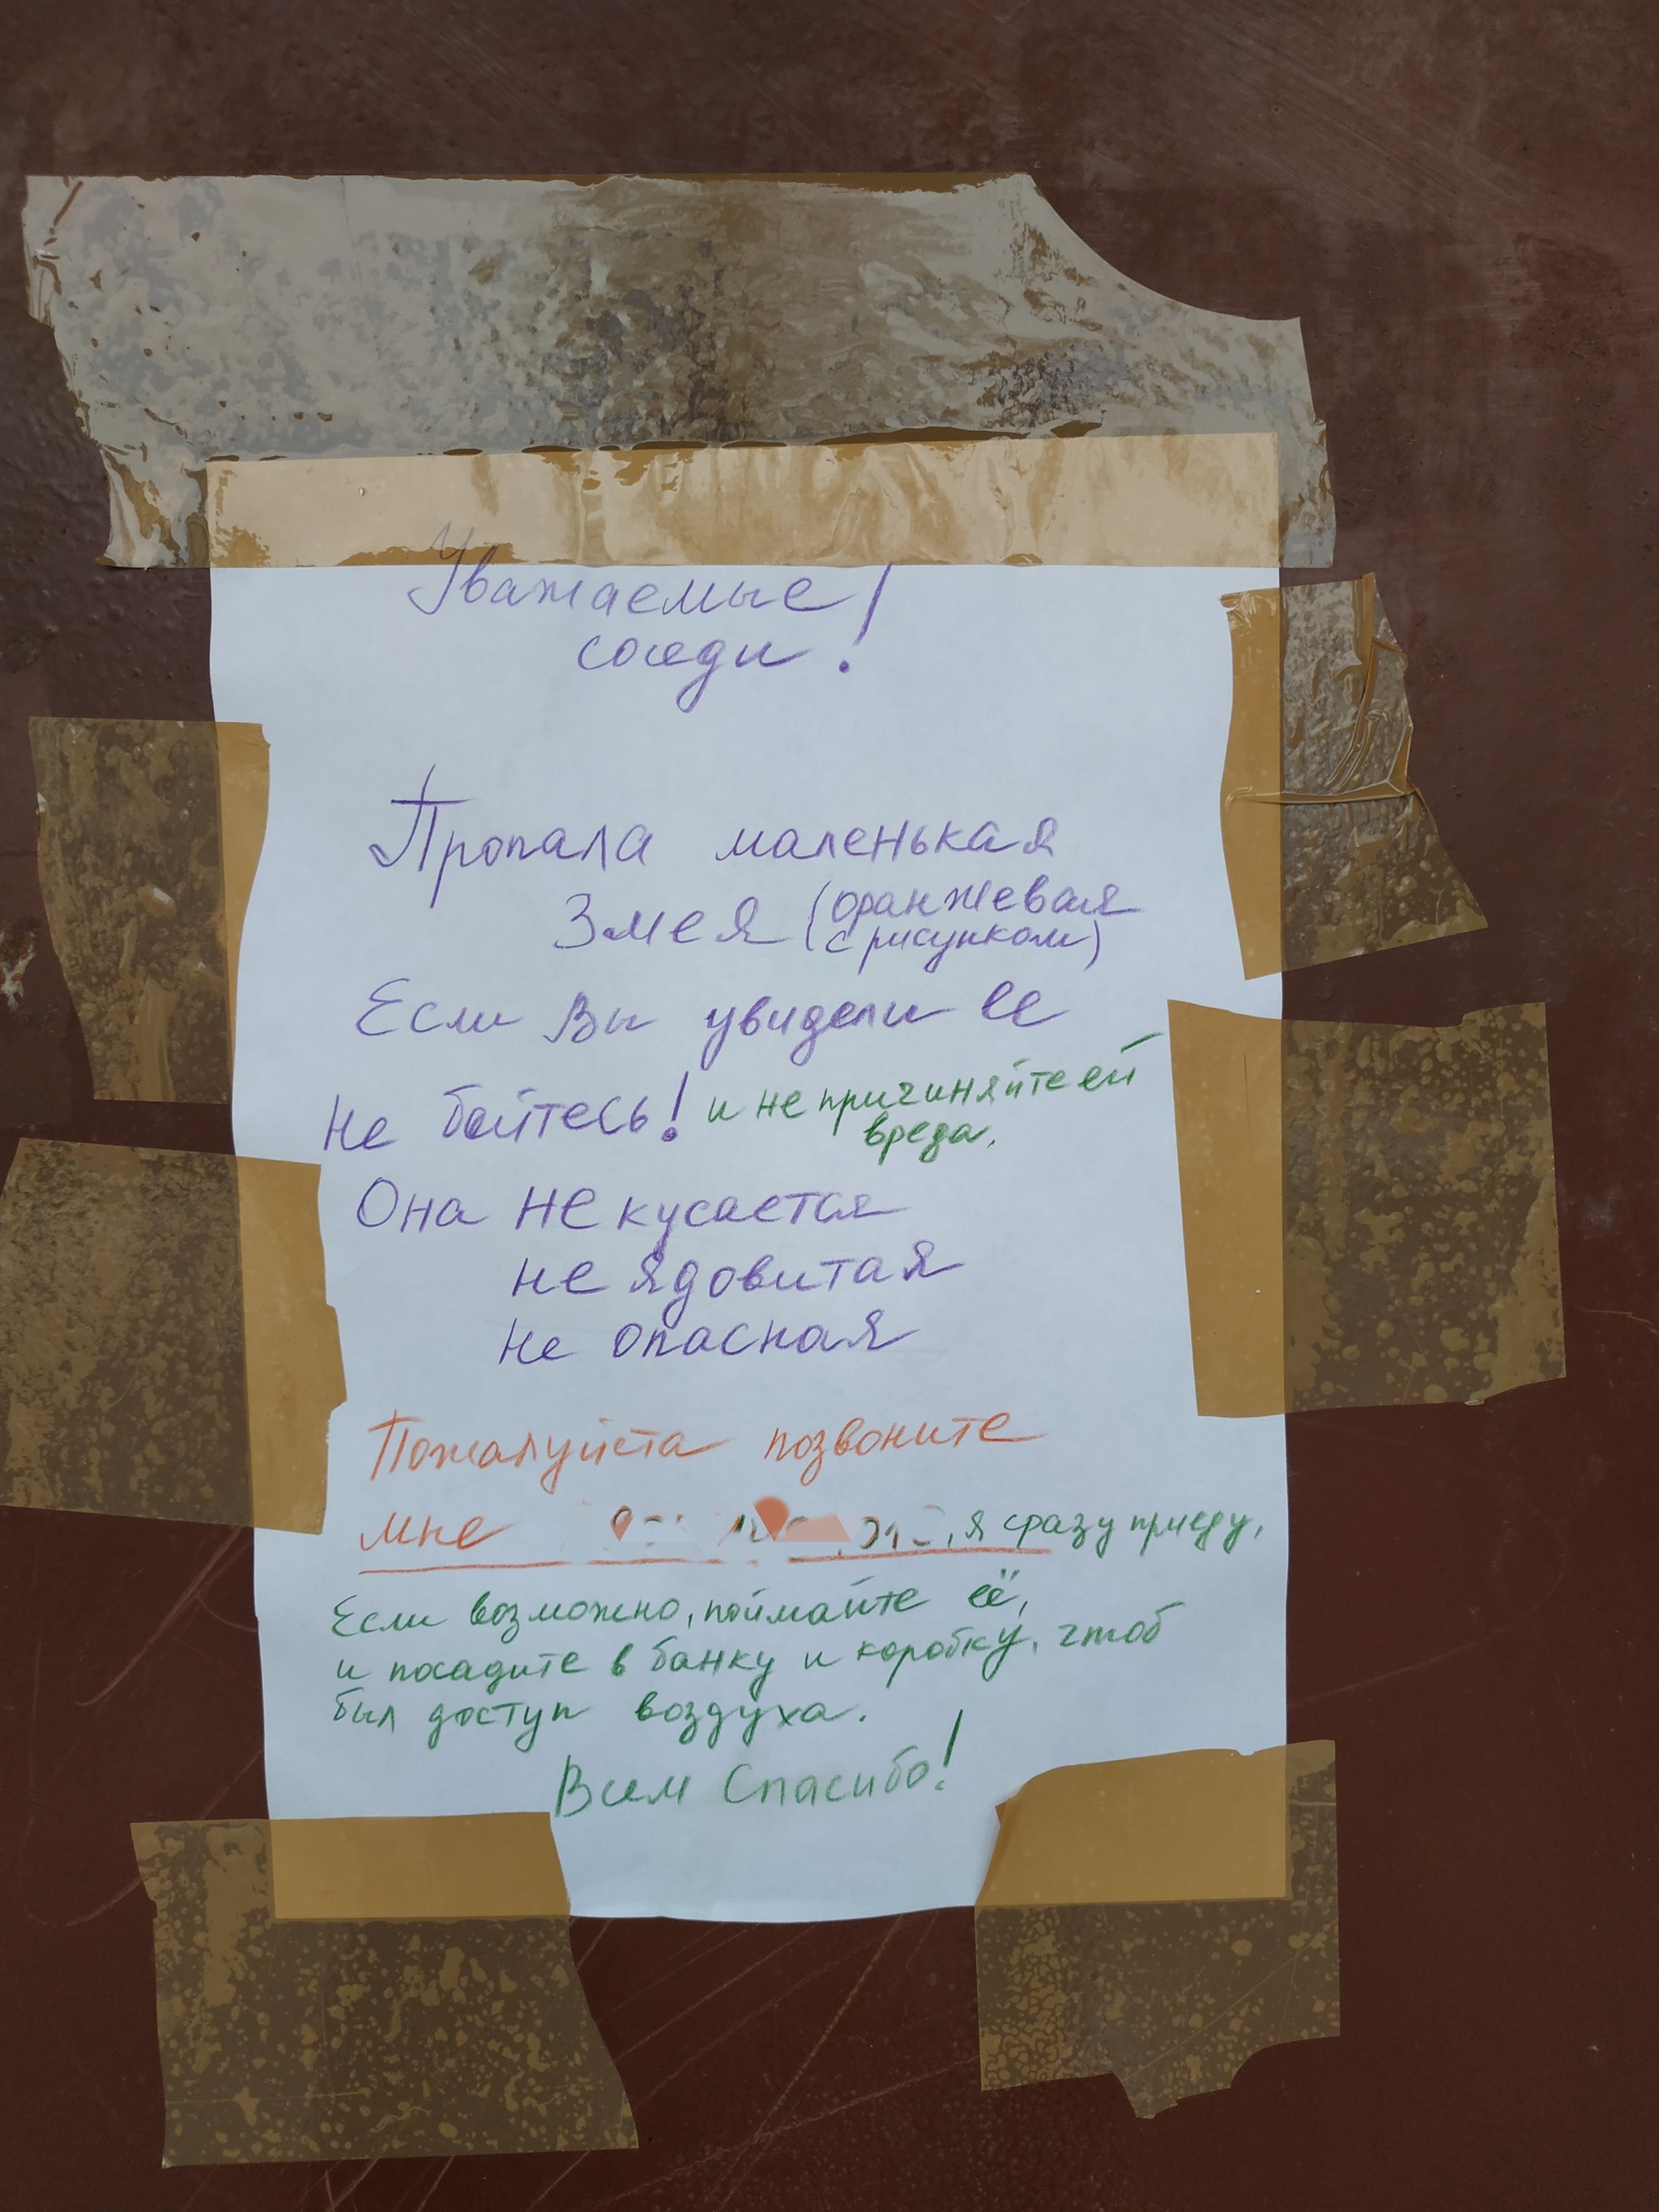 Уважаемые!
соседи!
Пропала маленькая
Змея (оранжевая
с рисунком)
Если Вы увидели ее
Не бойтесь! и не причиняйте ей
вреда.
Она не кусается
не ядовитая
не опасная
Пожалуйста позвоните
мне , я сразу приеду,
Если возможно, поймайте её,
и посадите в банку и коробку, чтоб
был доступ воздуха.
Всем Спасибо!